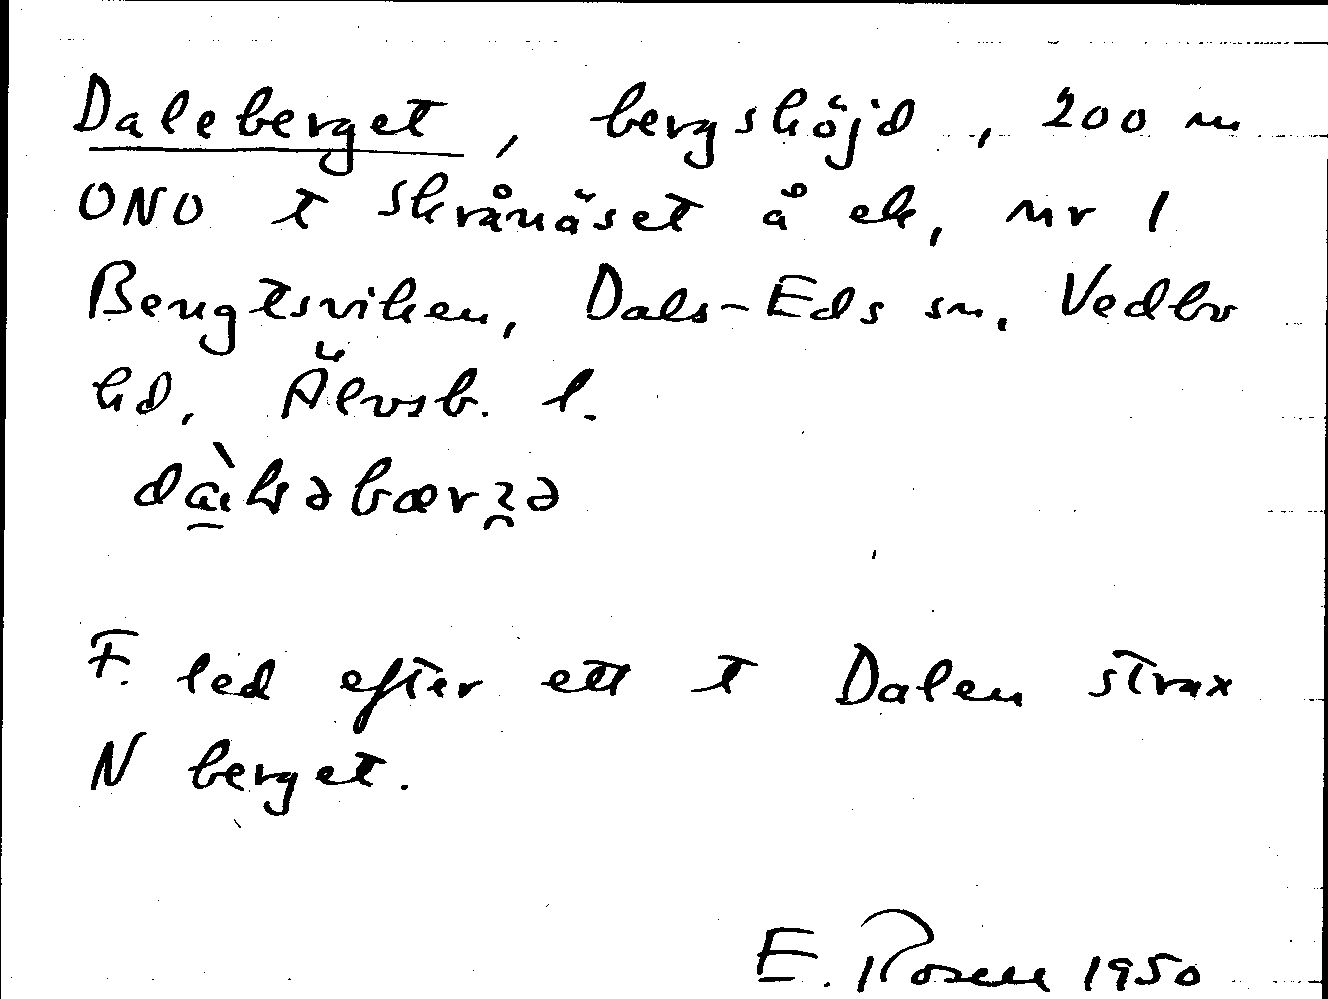 Daleberget, bergshöjd, 200 m
ONO t Skrånäset å ek, nr 1
Bengtsviken, Dals-Eds sn, Vedbo
hd, Älvsb. l.
F. led efter ett t Dalen strax
N berget.
E. Rosell 1950